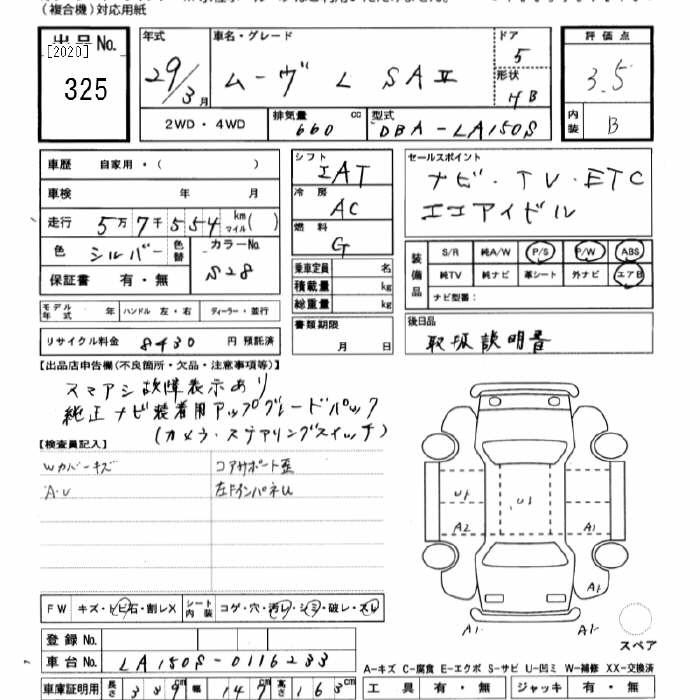 (複合機)対応用紙
出品No. [2020] 325
年式 29/3月
車名・グレード ムーヴ L SAⅡ
ドア 5
形状 HB
評価点 3.5
内装 B
2WD・4WD
排気量 660 cc
型式 DBA-LA150S
車歴 自家用・( )
車検 年 月
走行 5万7千554 km マイル( )
色 シルバー 色替 カラーNo. S28
保証書 有・無
モデル年式 年 ハンドル 左・右 ディーラー・並行
リサイクル料金 8430 円 預託済
シフト IAT
冷房 AC
燃料 G
乗車定員 名
積載量 kg
総重量 kg
書類期限
月 日
セールスポイント
ナビ・TV・ETC
エコアイドル
装備品 S/R 純A/W P/S P/W ABS
純TV 純ナビ 革シート 外ナビ エアB
ナビ型番:
後日品
取扱説明書
【出品店申告欄(不良箇所・欠品・注意事項等)】
スマアシ故障表示あり
純正ナビ装着用アップグレードパック
(カメラ・ステアリングスイッチ)
【検査員記入】
Wカバーキズ コアサポート歪
A・U 左FインパネU
U1 U1
A2 A1
A1
A1 A1
スペア
FW キズ・トビ石・割レX シート内装 コゲ・穴・汚レ・シミ・破レ・スレ
登録No.
車台No. LA150S-0116233
車庫証明用 長さ 339cm 幅 147cm 高さ 163cm
A-キズ C-腐食 E-エクボ S-サビ U-凹ミ W-補修 XX-交換済
工具 有・無 ジャッキ 有・無